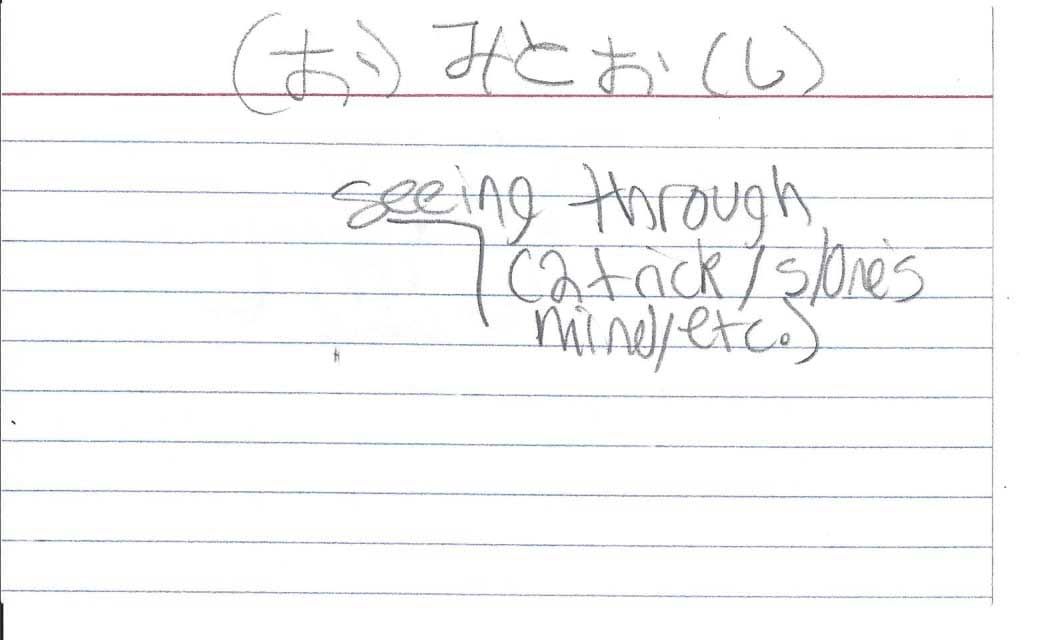 (お)みとお(し)
seeing through
(a trick/s/one's
mind/etc.)